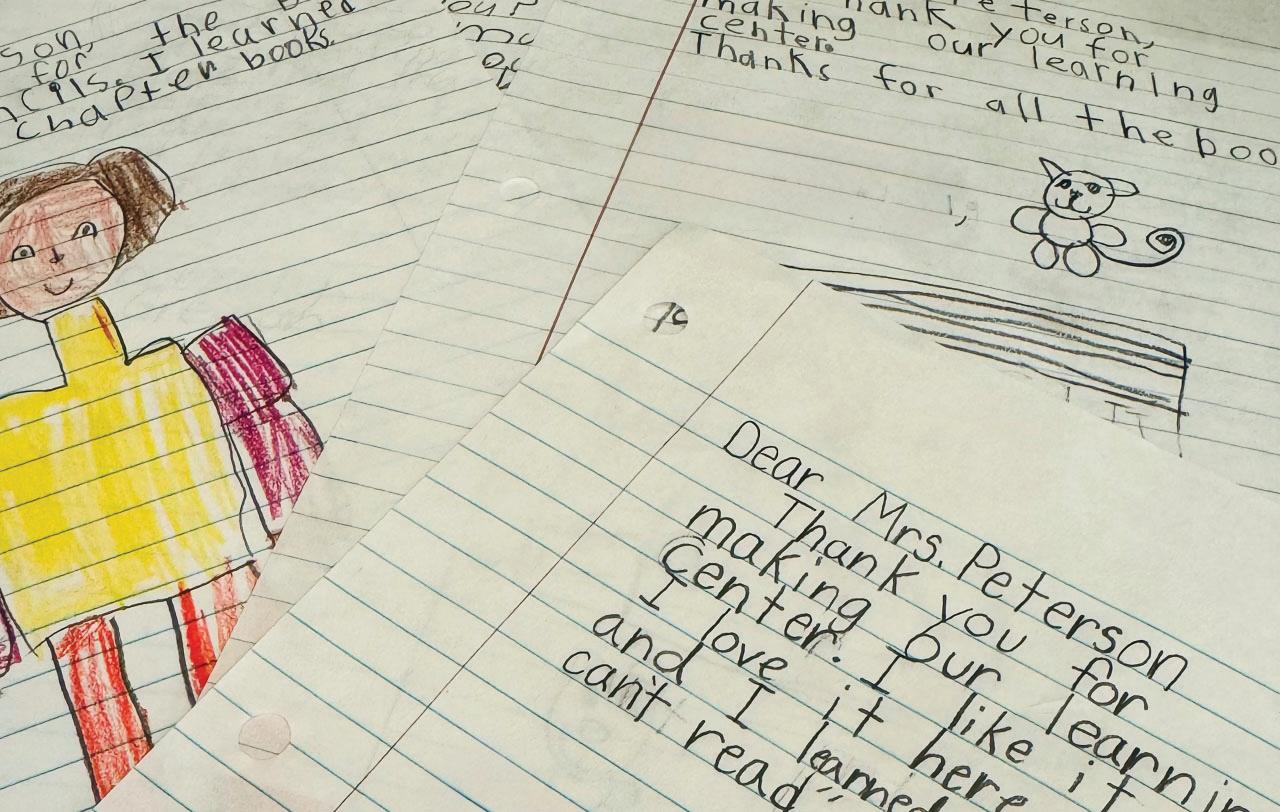 son, the
for
I learned
chapter books.
our
eterson,
hank you for
making our learning
center.
Thanks for all the boo
Dear Mrs. Peterson
Thank you for
making our learnin
Center. I like it
I love it here
and I learned
can't read"